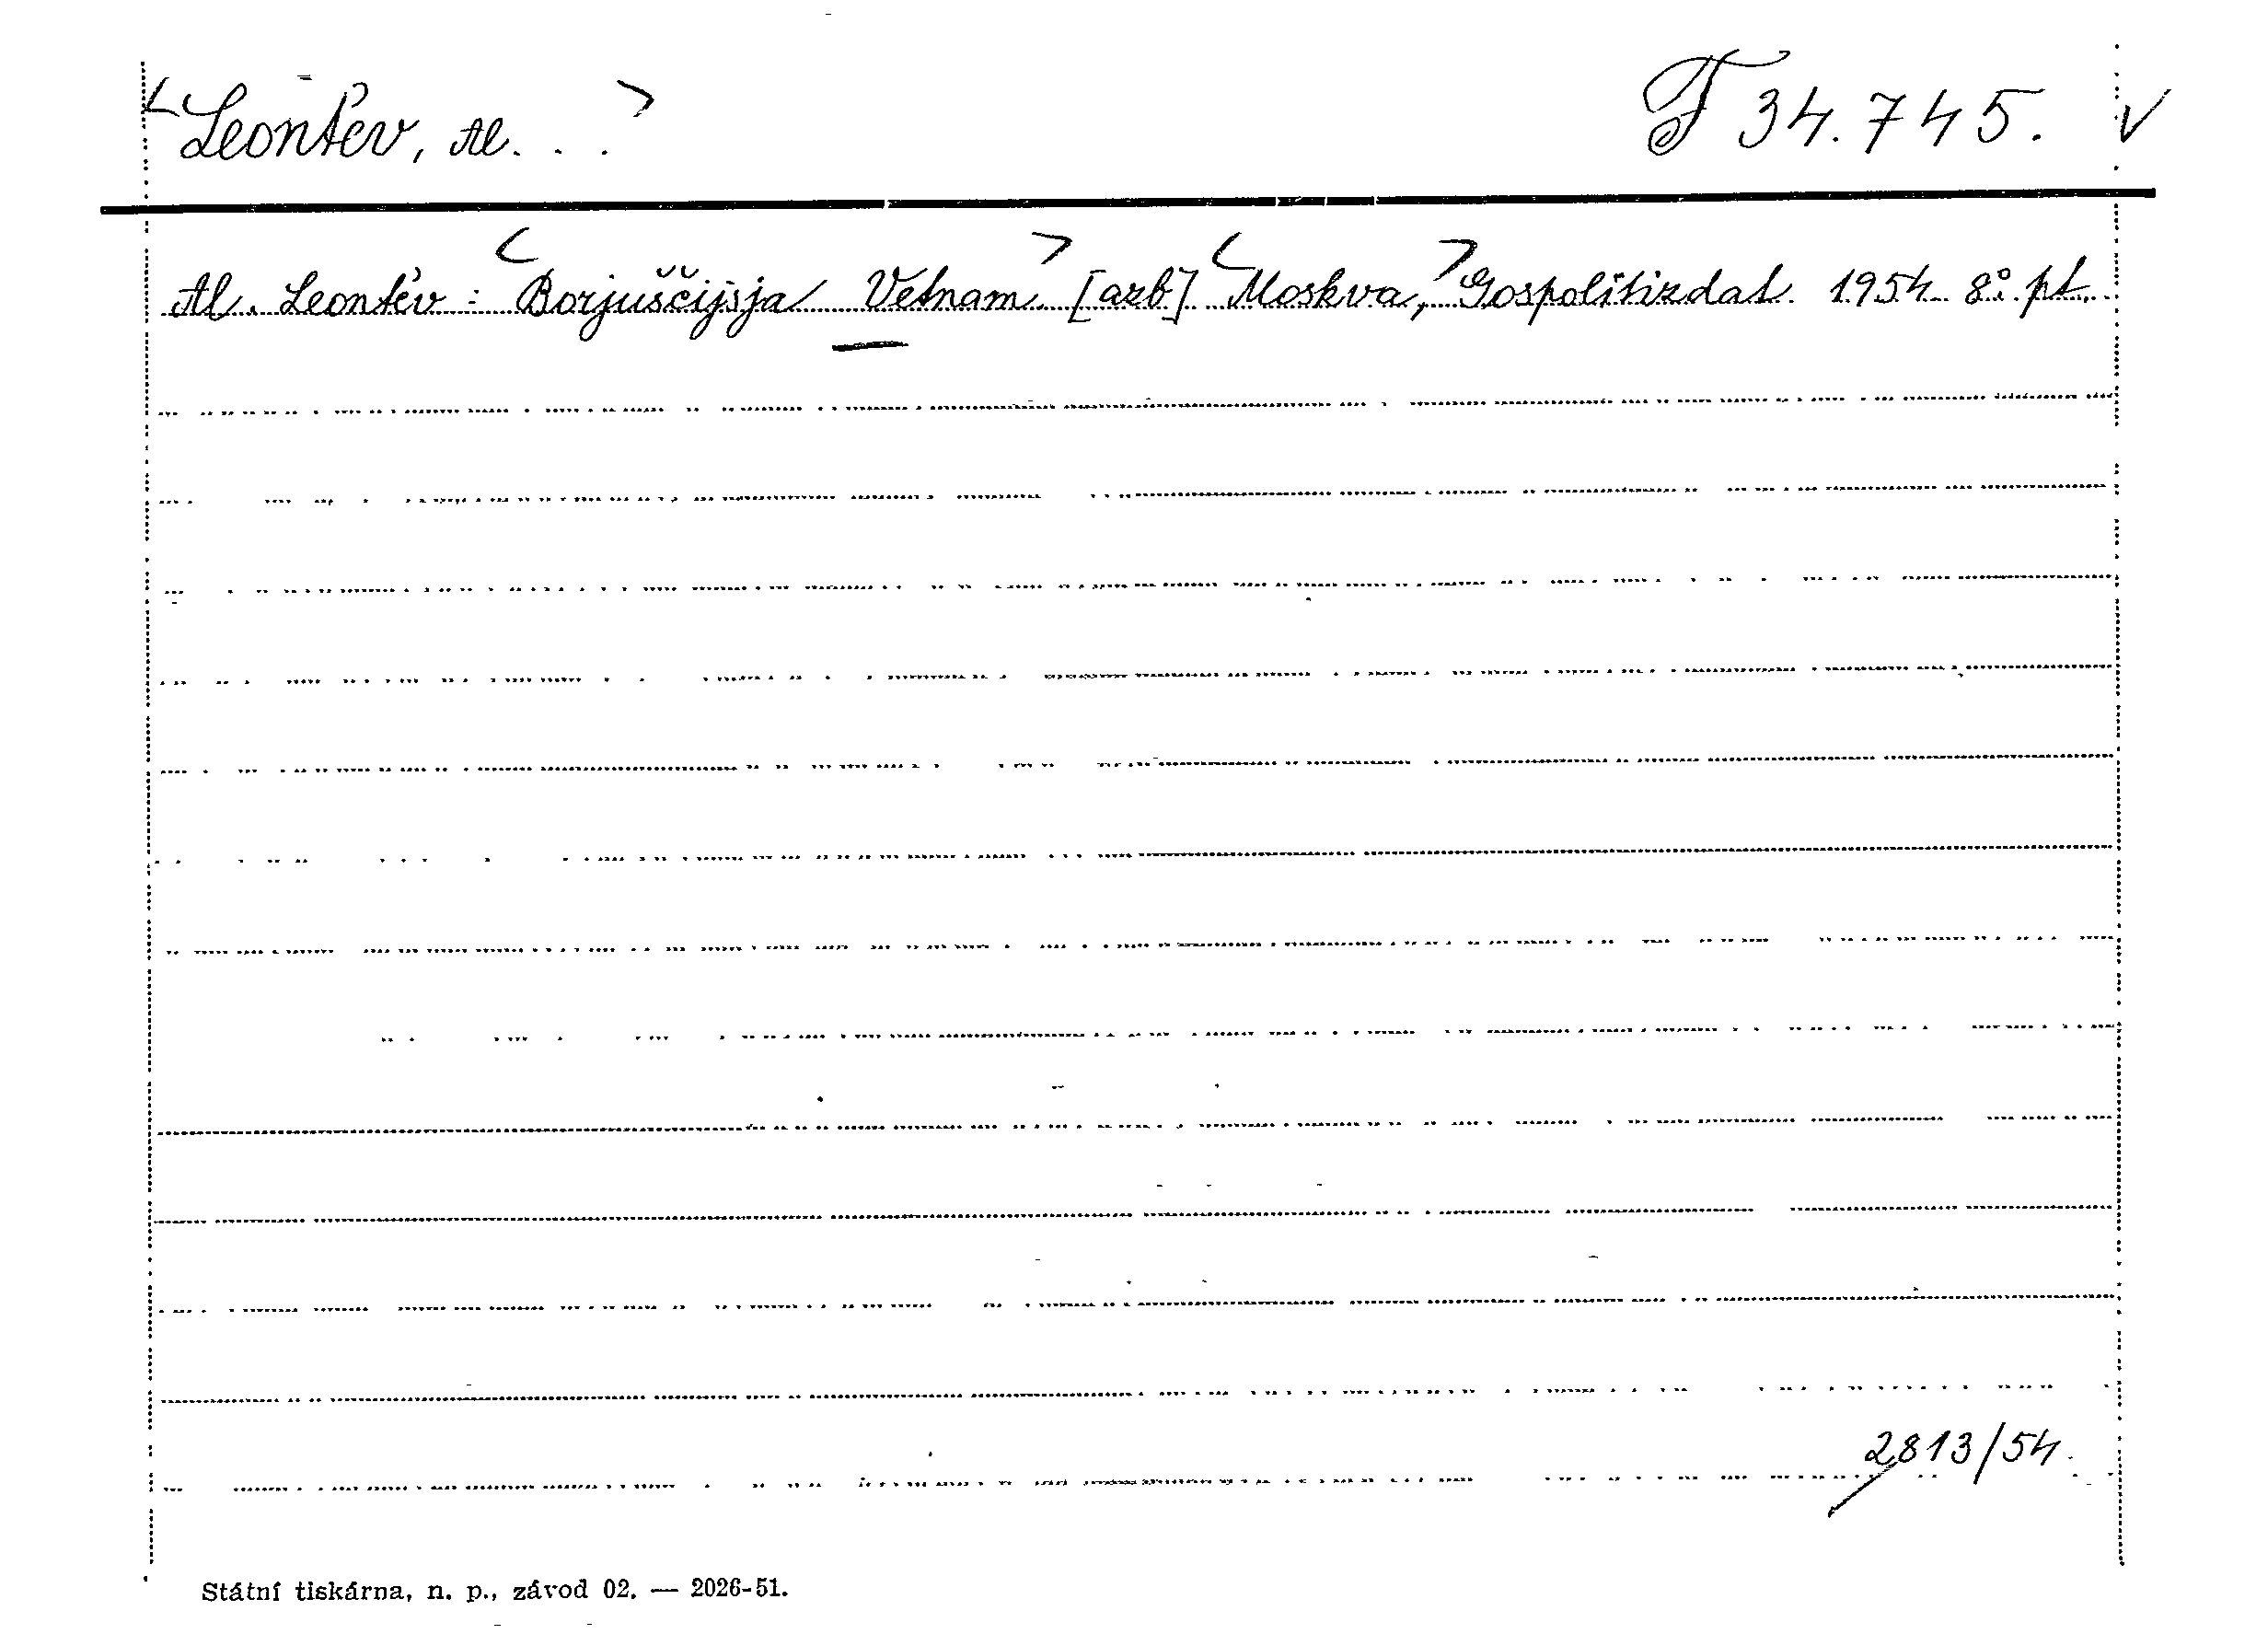 <Leont'ev, Al. . .> F 34.745. v
Al. Leont'ev: <Borjuščijsja Vetnam> [azb] <Moskva,> Gospolitizdat. 1954. 8°. pt.
2813/54.
Státní tiskárna, n. p., závod 02. — 2026-51.